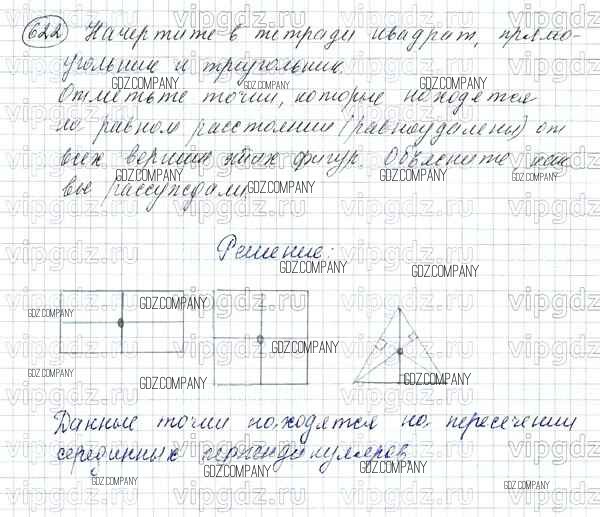 622 Начертите в тетради квадрат, прямо-
угольник и треугольник.
Отметьте точки, которые находятся
на равном расстоянии (равноудалены) от
всех вершин этих фигур. Объясните, как
вы рассуждали.
Решение:
Данные точки находятся на пересечении
серединных перпендикуляров.
vipgdz.ru
GDZ.COMPANY